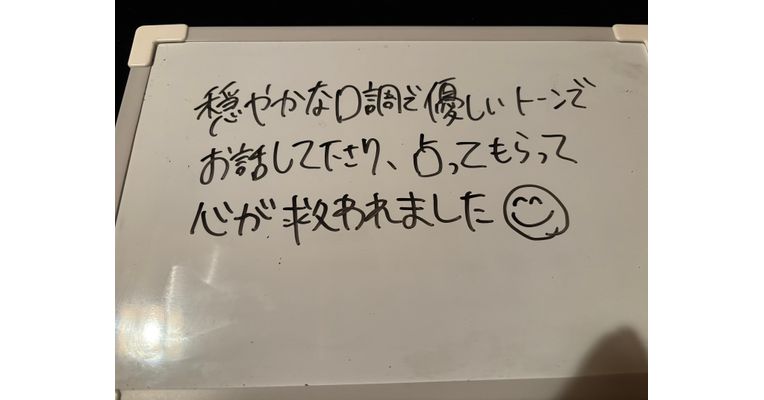 穏やかな口調で優しいトーンで
お話してださり、占ってもらって
心が救われました